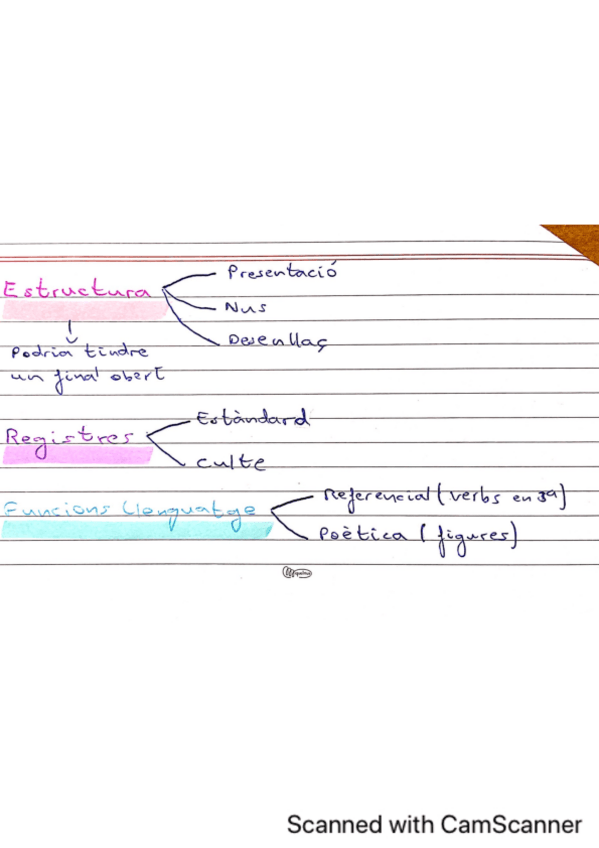 Presentació
Estructura
Nus
Desenllaç
Podria tindre
un final obert
Estàndard
Registres
culte
Referencial (verbs en 3ª)
Funcions Llenguatge
Poètica (figures)
Scanned with CamScanner